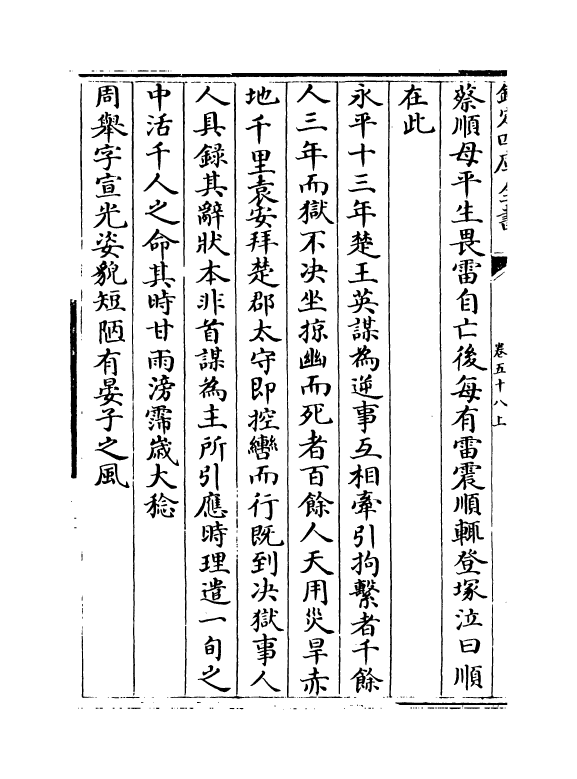 欽定四庫全書
卷五十八上
蔡順母平生畏雷自亡後每有雷震順輒登塚泣曰順
在此
永平十三年楚王英謀為逆事互相牽引拘繫者千餘
人三年而獄不决坐掠幽而死者百餘人天用災旱赤
地千里袁安拜楚郡太守即控轡而行既到决獄事人
人具録其辭狀本非首謀為主所引應時理遣一旬之
中活千人之命其時甘雨滂霈歲大稔
周舉字宣光姿貌短陋有晏子之風